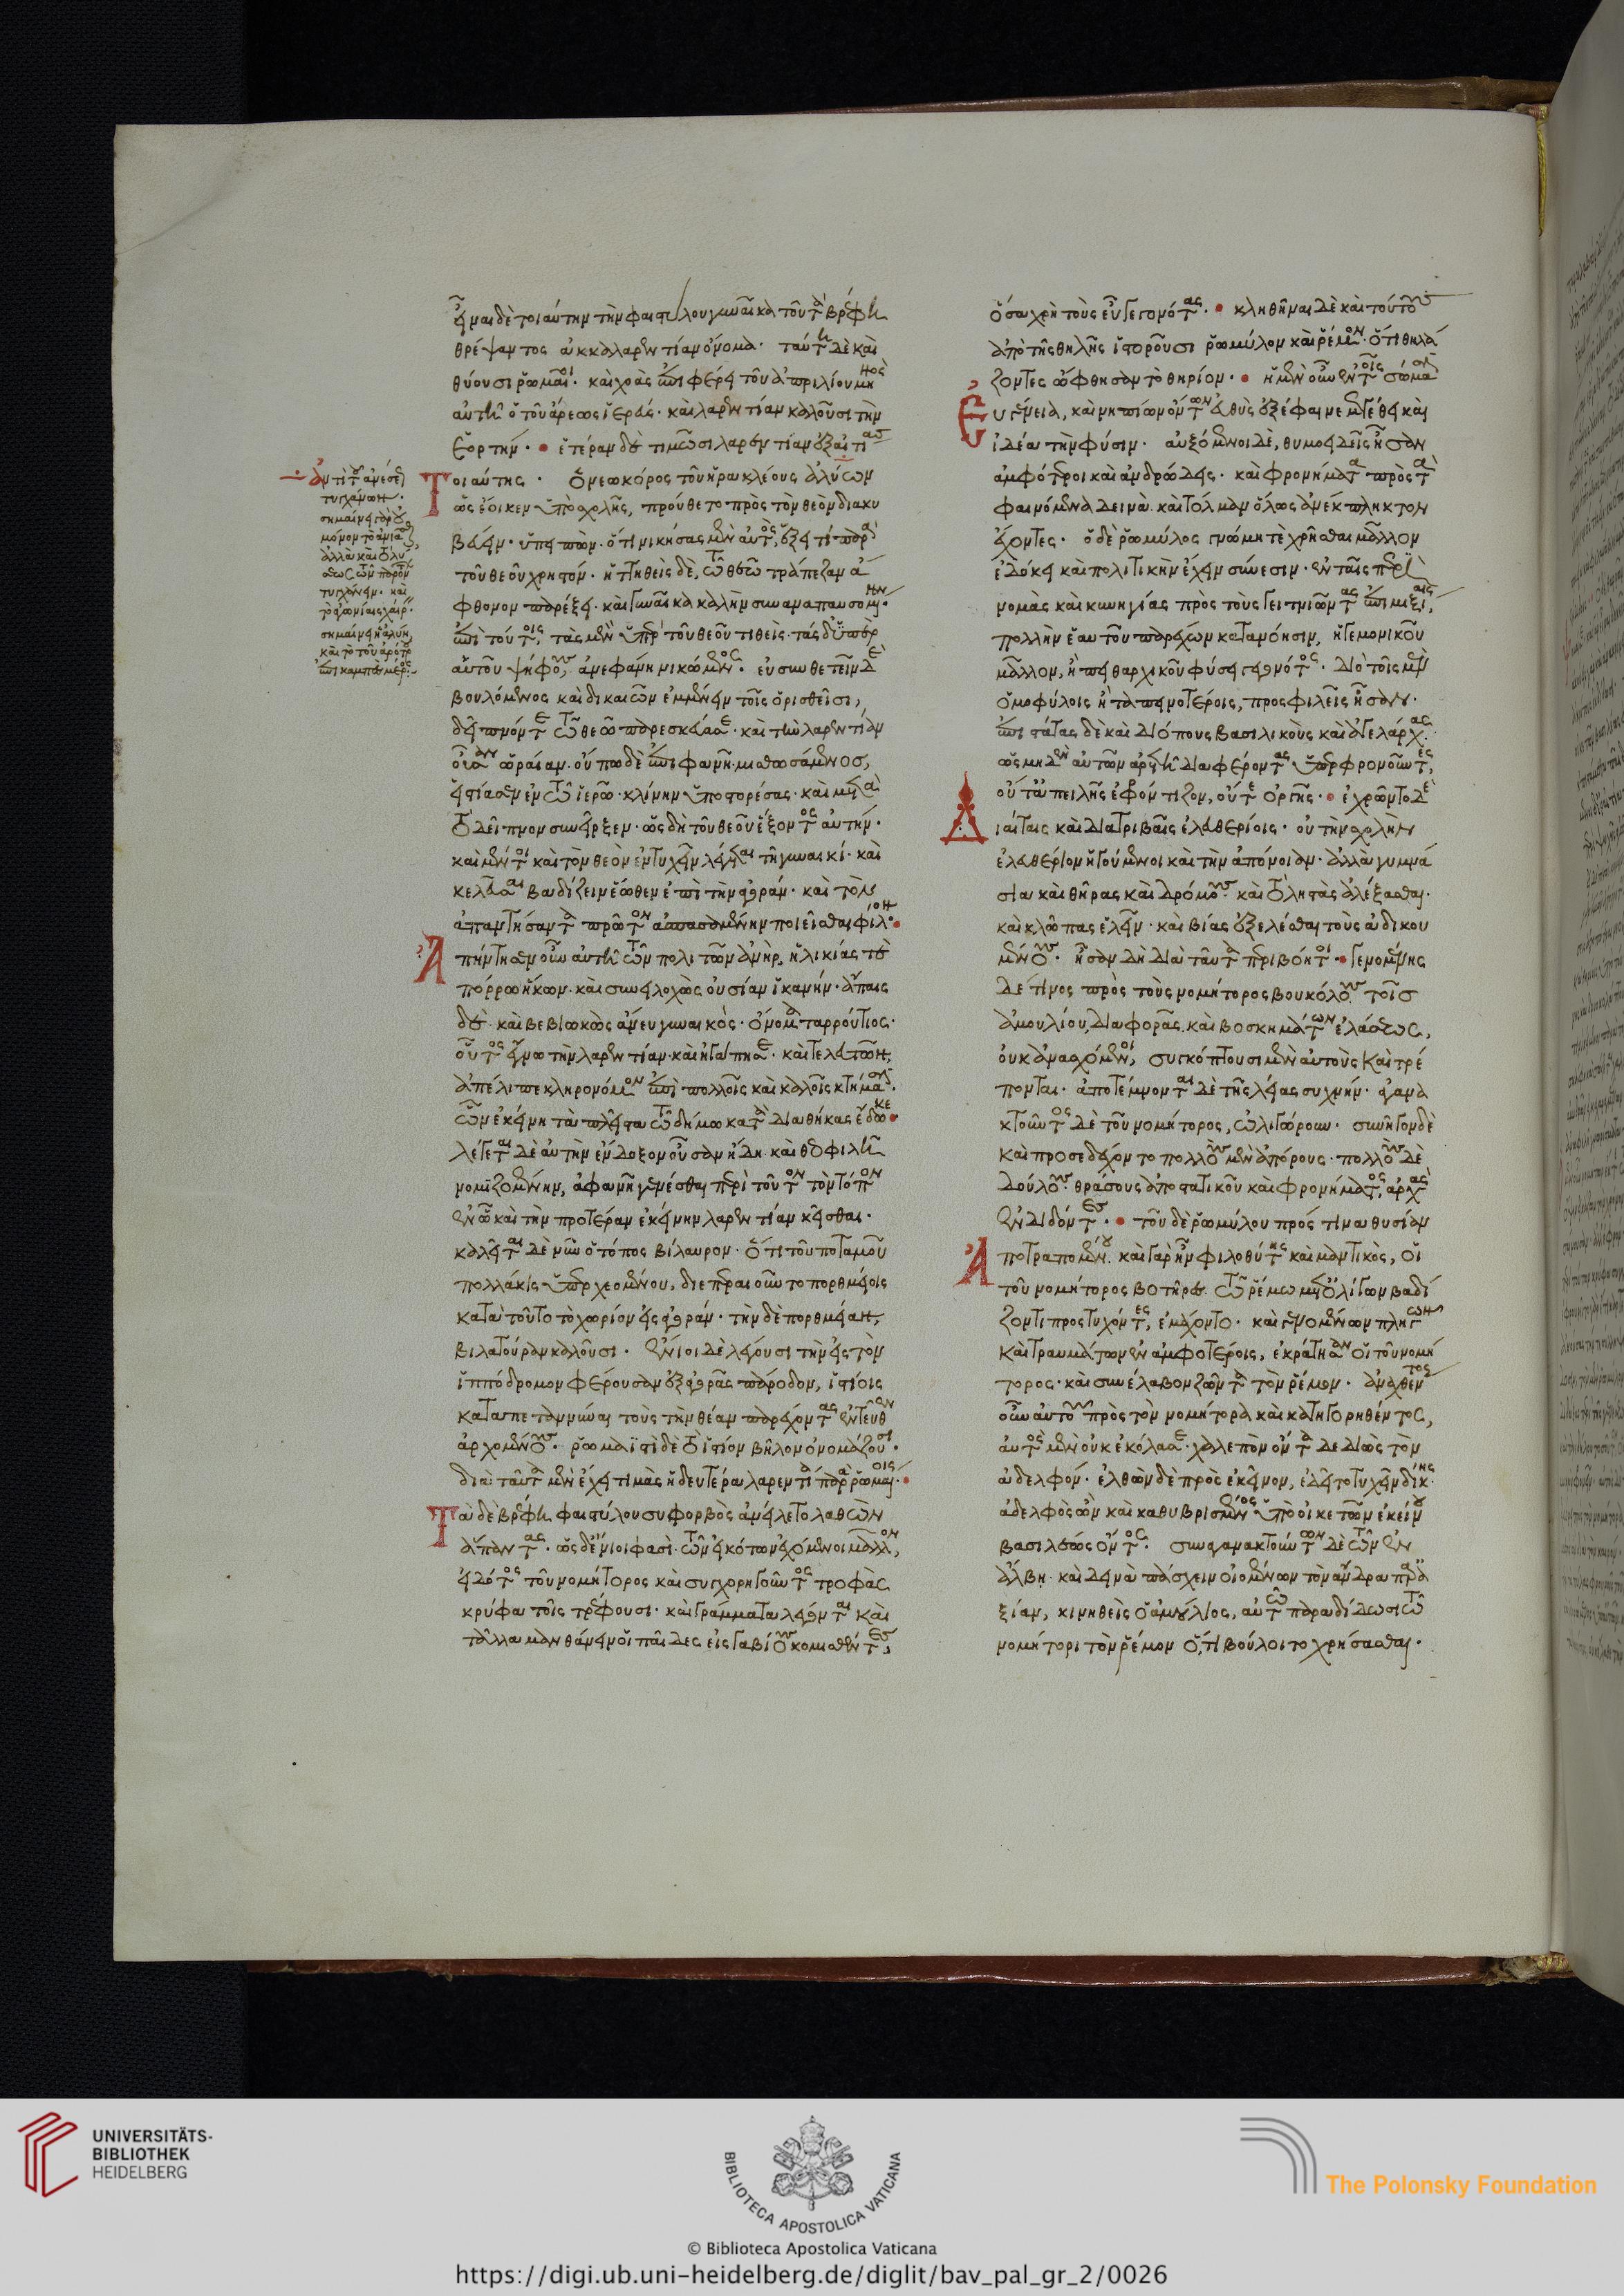 εἶναι δὲ τοιαύτην τὴν φαιστύλου γυναῖκα τοῦ τὰ βρέφη
θρέψαντος ἀκκαλαρεντίαν ὄνομα. ταύτη δὲ καὶ
θύουσι ῥωμαῖοι. καὶ χοὰς ἐπιφέρει τοῦ ἀπριλίου μηνὸς
αὐτῆ ὁ τοῦ ἄρεως ἱερεύς. καὶ λαρεντίαν καλοῦσι τὴν
ἑορτήν. ἑτέραν δὲ τιμῶσι λαρεντίαν ἐξ αἰτίας
τοιαύτης. ὁ νεωκόρος τοῦ ἡρακλέους ἀλύων
ὡς ἔοικεν ὑπὸ σχολῆς, προύθετο πρὸς τὸν θεὸν διακυ
βεύειν. ὑπειπὼν. ὅτι νικήσας μὲν αὐτὸς, ἕξει τι παρὰ
τοῦ θεοῦ χρηστόν. ἡττηθεὶς δὲ, τῶ θεῶ τράπεζαν ἄ
φθονον παρέξει. καὶ γυναῖκα καλὴν συναναπαυσομένην.
ἐπὶ τούτοις, τὰς μὲν ὑπὲρ τοῦ θεοῦ τιθεὶς. τὰς δ' ὑπὲρ
αὑτοῦ ψήφους, ἀνεφάνη νικώμενος. εὐσυνθετεῖν δὲ
βουλόμενος καὶ δικαιῶν ἐμμένειν τοῖς ὁρισθεῖσι,
δεῖπνόν τε τῶ θεῶ παρεσκεύασε. καὶ τὴν λαρεντίαν
οὖσαν ὡραίαν. οὔπω δὲ ἐπιφανῆ. μισθωσάμενος,
εἱστίασεν ἐν τῶ ἱερῶ. κλίνην ὑποστορέσας. καὶ μετὰ
τὸ δεῖπνον συνεῖρξεν. ὡς δὴ τοῦ θεοῦ ἕξοντος αὐτήν.
καὶ μέντοι καὶ τὸν θεὸν ἐντυχεῖν λέγεται τῆ γυναικί. καὶ
κελεῦσαι βαδίζειν ἕωθεν ἐπὶ τὴν ἀγοράν. καὶ τὸν
ἀπαντήσαντα πρῶτον ἀσπασαμένην ποιεῖσθαι φίλον.
ἀπήντησεν οὖν αὐτῆ τῶν πολιτῶν ἀνὴρ, ἡλικίας τε
πόρρω ἥκων. καὶ συνειλοχὼς οὐσίαν ἱκανήν. ἄπαις
δὲ. καὶ βεβιωκὼς ἄνευ γυναικός. ὄνομα ταρρούτιος.
οὗτος ἔγνω τὴν λαρεντίαν. καὶ ἠγάπησε. καὶ τελευτῶν,
ἀπέλιπε κληρονόμον ἐπὶ πολλοῖς καὶ καλοῖς κτήμασιν.
ὧν ἐκείνη τὰ πλεῖστα τῶ δήμω κατὰ διαθήκας ἔδωκε.
λέγεται δὲ αὐτὴν ἔνδοξον οὖσαν ἤδη. καὶ θεοφιλῆ
νομιζομένην, ἀφανῆ γενέσθαι περὶ τοῦτον τὸν τόπον
ἐν ὧ καὶ τὴν προτέραν ἐκείνην λαρεντίαν κεῖσθαι.
καλεῖται δὲ νῦν ὁ τόπος βίλαυρον. ὅτι τοῦ ποταμοῦ
πολλάκις ὑπερχεομένου, διεπεραιοῦντο πορθμείοις
κατὰ τοῦτο τὸ χωρίον εἰς ἀγοράν. τὴν δὲ πορθμείαν,
βιλατούραν καλοῦσι. ἔνιοι δὲ λέγουσι τὴν εἰς τὸν
ἱππόδρομον φέρουσαν ἐξ ἀγορᾶς πάροδον, ἱστίοις
καταπεταννύναι τοὺς τὴν θέαν παρέχοντας ἐντεῦθεν
ἀρχομένους. ῥωμαϊστὶ δὲ τὸ ἱστίον βῆλον ὀνομάζουσι.
διὰ ταῦτα μὲν ἔχει τιμὰς ἡ δευτέρα λαρεντία παρὰ ῥωμαίοις.
τὰ δὲ βρέφη φαιστύλου συφορβὸς ἀνείλετο λαθὼν
ἅπαντας. ὡς δ' ἔνιοι φασὶ. τῶν εἰκότων ἐχόμενοι μᾶλλον,
εἰδότος τοῦ νομήτορος καὶ συγχορηγοῦντος τροφὰς
κρύφα τοῖς τρέφουσι. καὶ γράμματα λέγονται καὶ
τἆλλα μανθάνειν οἱ παῖδες εἰς γαβίους κομισθέντες,
ἀντὶ τοῦ ἀνέσεως
τυγχάνων.
σημαίνει γὰρ οὐ
μόνον τὸ ἀνιᾶσθαι,
ἀλλὰ καὶ τὸ λύ
σεως τῶν παρόντων
τυγχάνειν. καὶ
σημαίνει
καὶ τὸ τοῦ ἀρότρου
ὅσα χρὴ τοὺς εὖ γεγονότας. κληθῆναι δὲ καὶ τούτους
ἀπὸ τῆς θηλῆς ἱστοροῦσι ῥωμύλον καὶ ῥέμον. ὅτι θηλά
ζοντες ὤφθησαν τὸ θηρίον. ἡ μὲν οὖν ἐν τοῖς σώμασιν
εὐγένεια, καὶ νηπίων ὄντων εὐθὺς ἐξέφαινε μεγέθει καὶ
ἰδέα τὴν φύσιν. αὐξόμενοι δὲ, θυμοειδεῖς ἦσαν
ἀμφότεροι καὶ ἀνδρώδεις. καὶ φρονήματα πρὸς τὰ
φαινόμενα δεινὰ. καὶ τόλμαν ὅλως ἀνέκπληκτον
ἔχοντες. ὁ δὲ ῥωμύλος γνώμη τὲ χρῆσθαι μᾶλλον
ἐδόκει καὶ πολιτικὴν ἔχειν σύνεσιν. ἐν ταῖς περὶ
νομὰς καὶ κυνηγίας πρὸς τοὺς γειτνιῶντας ἐπιμιξίαις,
πολλὴν ἑαυτοῦ παρέχων κατανόησιν, ἡγεμονικοῦ
μᾶλλον, ἢ πειθαρχικοῦ φύσει γεγονότος. διὸ τοῖς μὲν
ὁμοφύλοις ἢ ταπεινοτέροις, προσφιλεῖς ἦσαν.
ἐπιστάτας δὲ καὶ διόπους βασιλικοὺς καὶ ἀγελάρχας.
ὡς μηδὲν αὐτῶν ἀρετῆ διαφέροντας ὑπερφρονοῦντες,
οὔτ' ἀπειλῆς ἐφρόντιζον, οὔτε ὀργῆς. ἐχρῶντο δὲ
διαίταις καὶ διατριβαῖς ἐλευθερίοις. οὐ τὴν σχολὴν
ἐλευθέριον ἡγούμενοι καὶ τὴν ἀπόνοιαν. ἀλλὰ γυμνά
σια καὶ θῆρας καὶ δρόμους. καὶ τὸ ληστὰς ἀλέξασθαι.
καὶ κλῶπας ἑλεῖν. καὶ βίας ἐξελέσθαι τοὺς ἀδικου
μένους. ἦσαν δὴ διὰ ταῦτα περιβόητοι. γενομένης
δέ τινος πρὸς τοὺς νομήτορος βουκόλους τοῖς
ἀμουλίου, διαφορᾶς. καὶ βοσκημάτων ἐλάσεως,
οὐκ ἀνασχόμενοι, συγκόπτουσι μὲν αὐτοὺς καὶ τρέ
πονται. ἀποτέμνονται δὲ τῆς λείας συχνήν. ἀγανα
κτοῦντος δὲ τοῦ νομήτορος, ὠλιγώρουν. συνῆγον δὲ
καὶ προσεδέχοντο πολλοὺς μὲν ἀπόρους. πολλοὺς δὲ
δούλους. θράσους ἀποστατικοῦ καὶ φρονήματος, ἀρχὰς
ἐνδιδόντες. τοῦ δὲ ῥωμύλου πρός τινα θυσίαν
ἀποτραπομένου. καὶ γὰρ ἦν φιλοθύτης καὶ μαντικὸς, οἱ
τοῦ νομήτορος βοτῆρες. τῶ ῥέμω μετ' ὀλίγων βαδί
ζοντι προστυχόντες, ἐμάχοντο. καὶ γενομένων πληγῶν
καὶ τραυμάτων ἐν ἀμφοτέροις, ἐκράτησαν οἱ τοῦ νομή
τορος. καὶ συνέλαβον ζῶντα τὸν ῥέμον. ἀναχθέντος
οὖν αὐτοῦ πρὸς τὸν νομήτορα καὶ κατηγορηθέντος,
αὐτὸς μὲν οὐκ ἐκόλασε. χαλεπὸν ὄντα δεδιὼς τὸν
ἀδελφόν. ἐλθὼν δὲ πρὸς ἐκεῖνον, ἐδεῖτο τυχεῖν δίκης.
ἀδελφὸς ὢν καὶ καθυβρισμένος ὑπὸ οἰκετῶν ἐκείνου
βασιλέως ὄντος. συναγανακτούντων δὲ τῶν ἐν
ἄλβη. καὶ δεινὰ πάσχειν οἰομένων τὸν ἄνδρα παρ' ἀ
ξίαν, κινηθεὶς ὁ ἀμούλιος, αὐτῶ παραδίδωσι τῶ
νομήτορι τὸν ῥέμον ὅ,τι βούλοιτο χρήσασθαι.
UNIVERSITÄTS-
BIBLIOTHEK
HEIDELBERG
BIBLIOTECA APOSTOLICA VATICANA
The Polonsky Foundation
© Biblioteca Apostolica Vaticana
https://digi.ub.uni-heidelberg.de/diglit/bav_pal_gr_2/0026